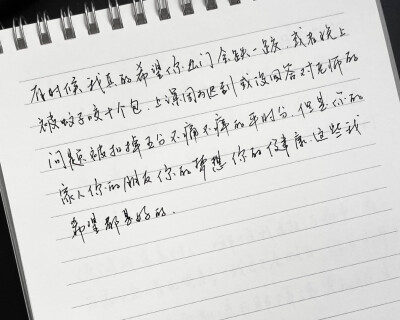 有时候我真的希望你出门会跌一跤，或者晚上
被蚊子咬十个包，上课因为迟到或没回答对老师的
问题被扣掉五分不痛不痒的平时分，但是你的
家人你的朋友你的梦想你的健康这些我
希望都是好的.